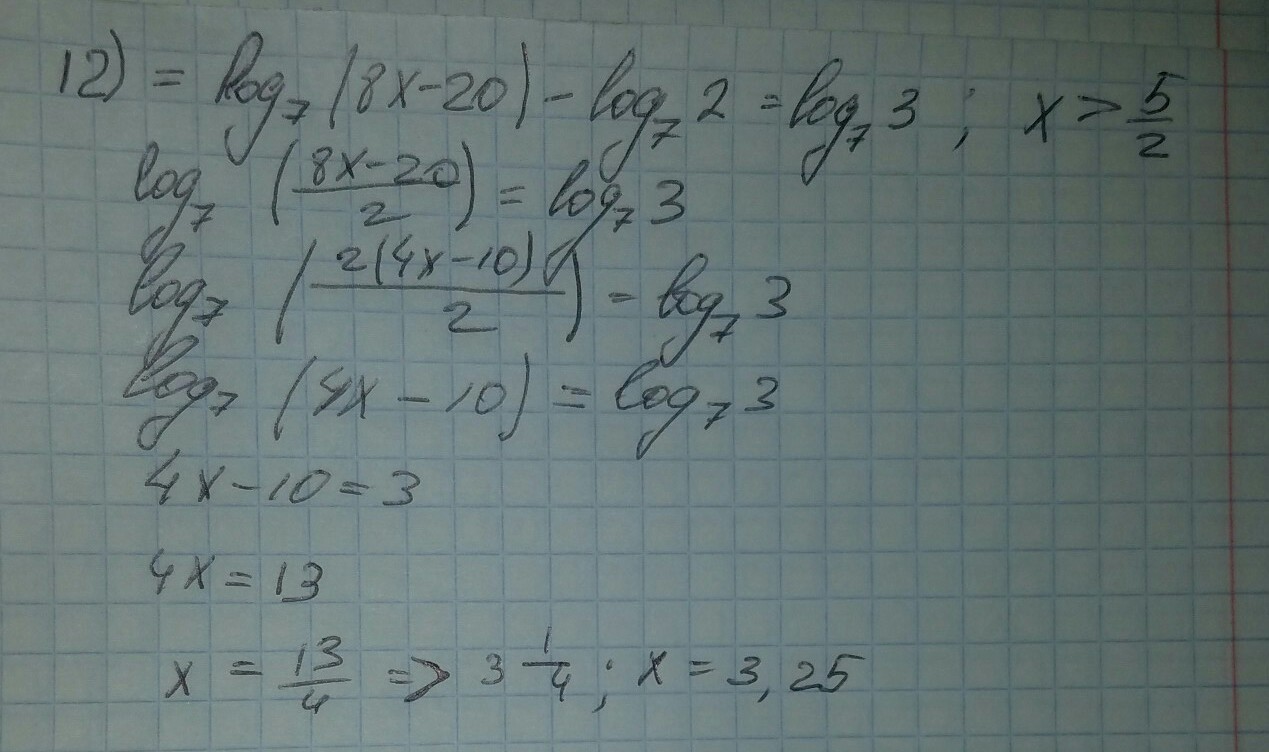 12) = log₇ (8x-20) - log₇ 2 = log₇ 3 ; x > 5/2
log₇ ((8x-20)/2) = log₇ 3
log₇ (2(4x-10)/2) = log₇ 3
log₇ (4x - 10) = log₇ 3
4x-10=3
4x=13
x = 13/4 => 3 1/4 ; x = 3,25